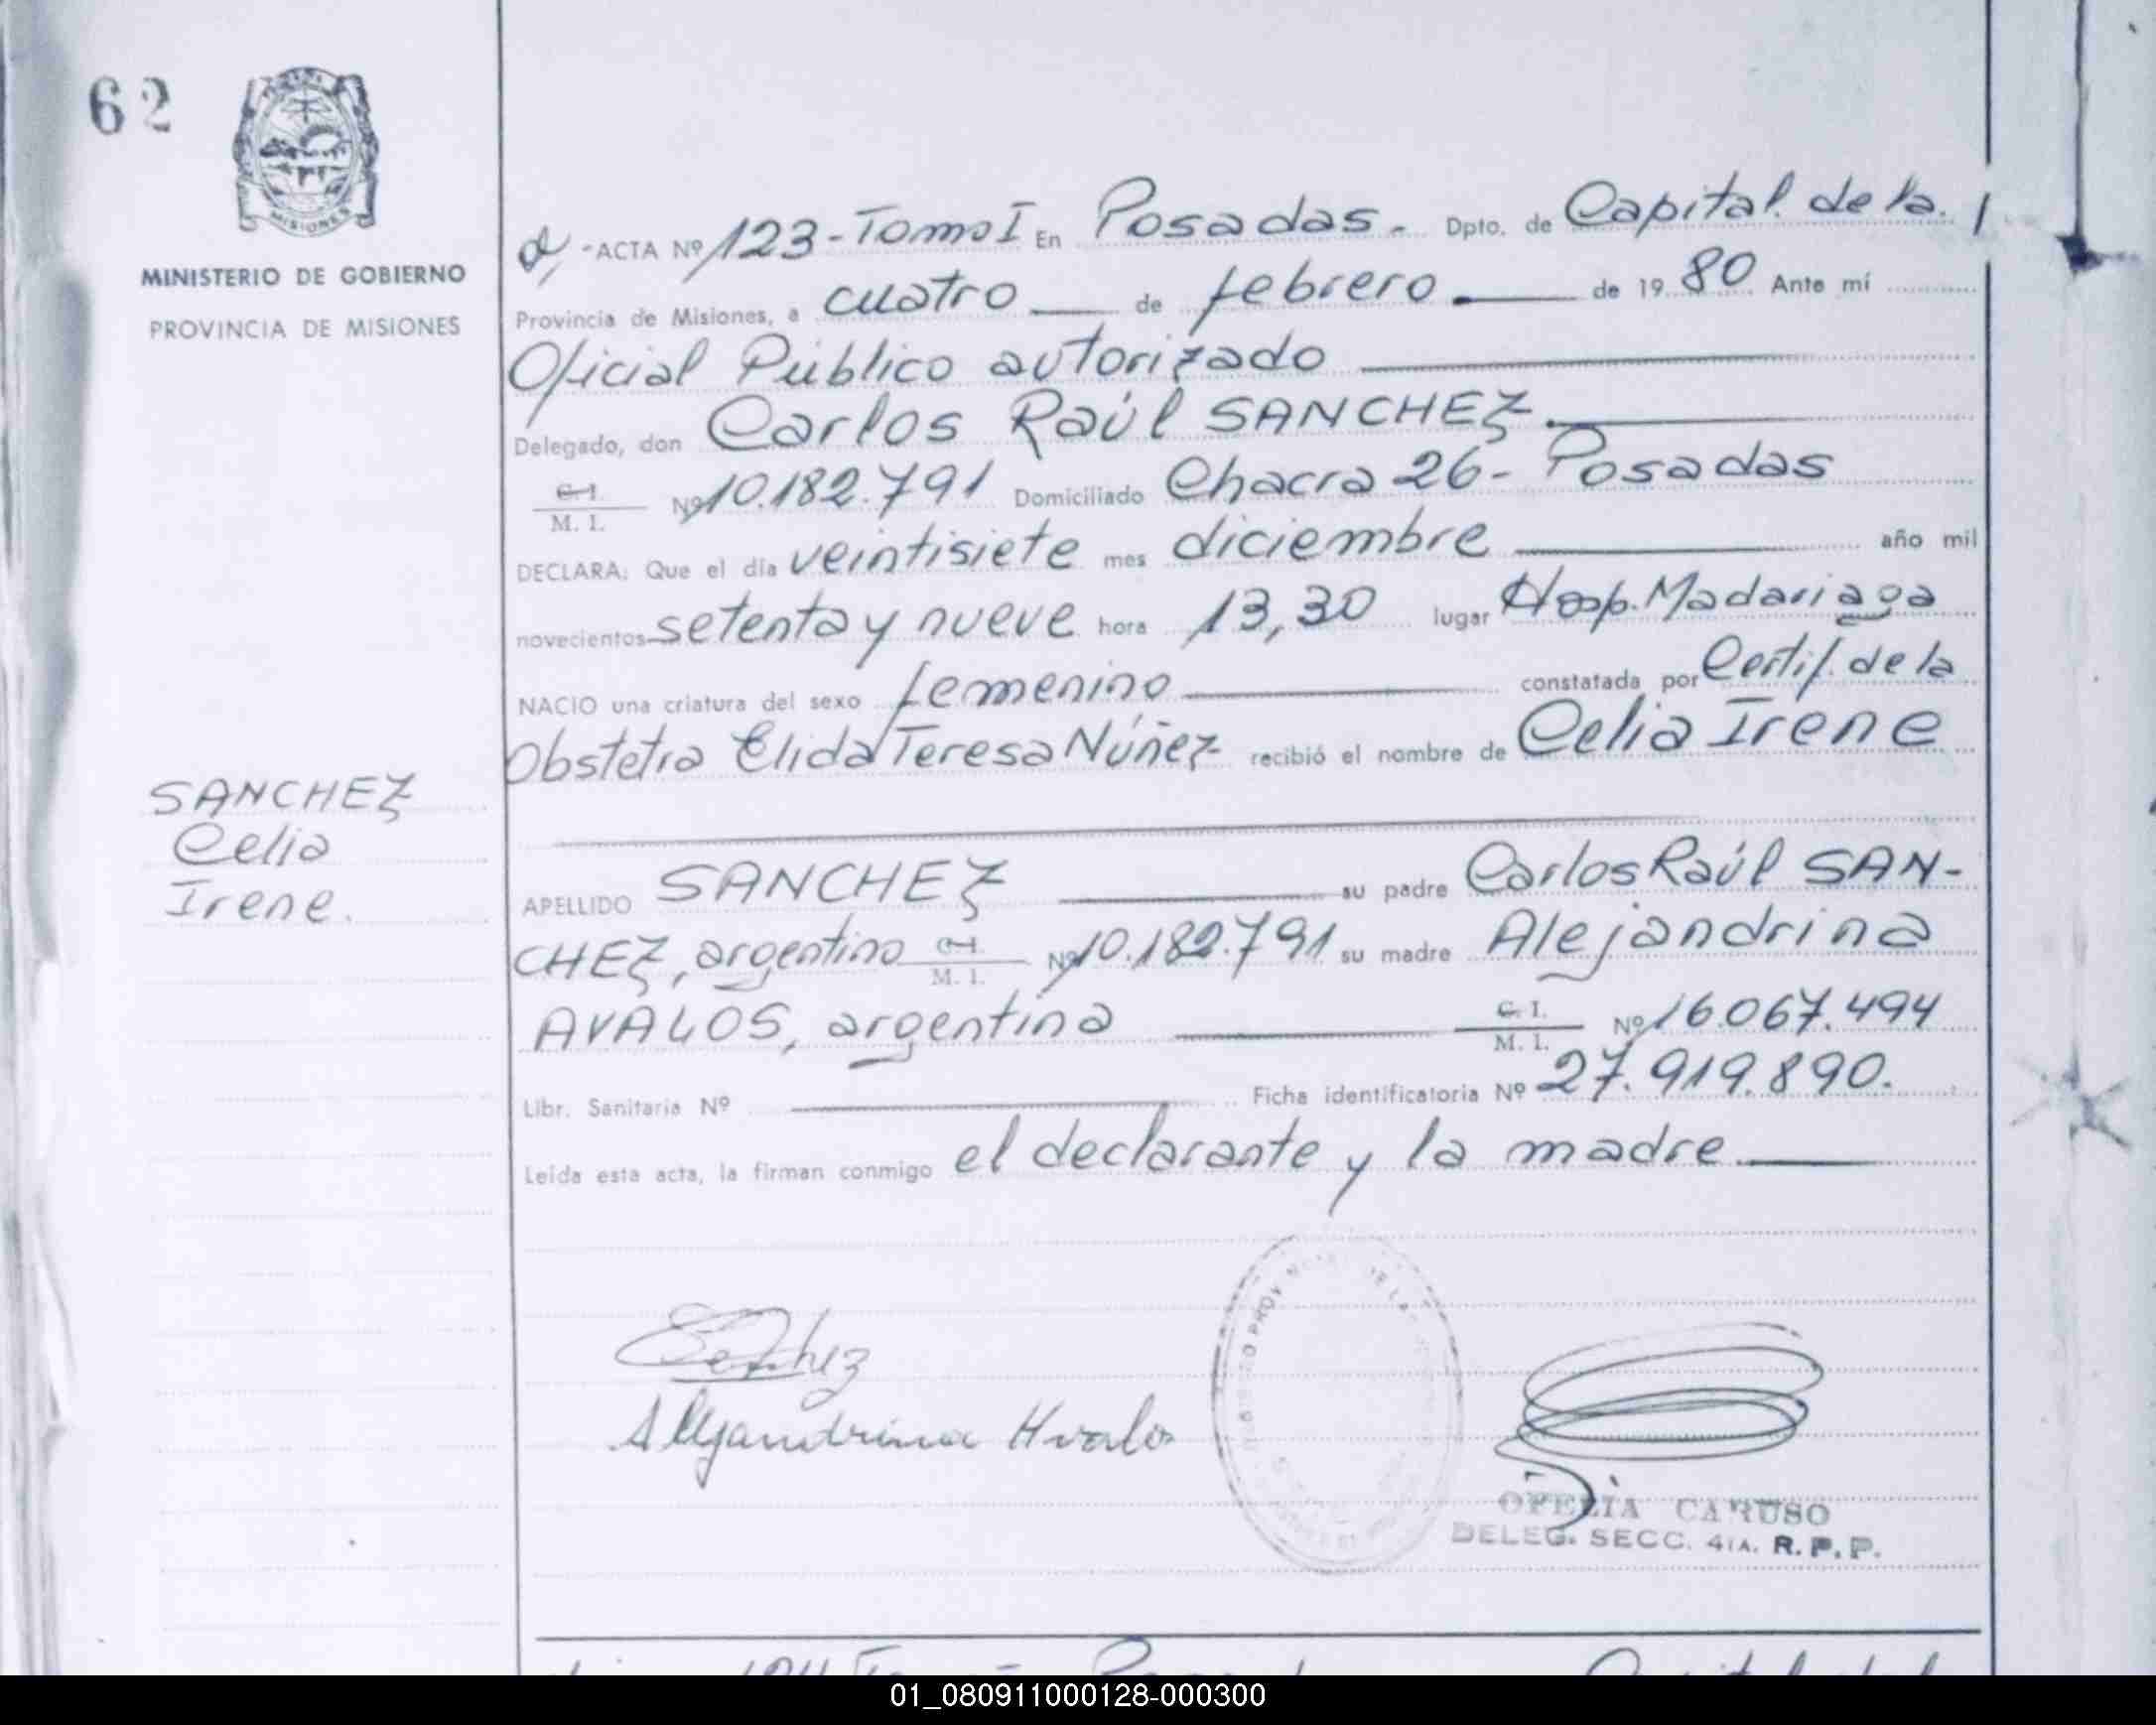 62
MISIONES
MINISTERIO DE GOBIERNO
PROVINCIA DE MISIONES
SANCHEZ
Celia
Irene.
-ACTA Nº 123-Tomo I En Posadas.- Dpto. de Capital de la
Provincia de Misiones, a cuatro de febrero de 1980 Ante mí
Oficial Público autorizado
Delegado, don Carlos Raúl SANCHEZ.
C. I.
M. I.
Nº 10.182.791 Domiciliado Chacra 26- Posadas
DECLARA: Que el día veintisiete mes diciembre año mil
novecientos setenta y nueve hora 13,30 lugar Hosp. Madariaga
NACIO una criatura del sexo femenino constatada por Certif. de la
Obstetra Elida Teresa Núñez recibió el nombre de Celia Irene
APELLIDO SANCHEZ su padre Carlos Raúl SAN-
CHEZ, argentino C. I. M. I. Nº 10.182.791 su madre Alejandrina
AVALOS, argentina C. I. M. I. Nº 16.067.494
Libr. Sanitaria Nº Ficha identificatoria Nº 27.919.890.
Leída esta acta, la firman conmigo el declarante y la madre
Alejandrina Avalos
OFELIA CARUSO
DELEG. SECC. 4TA. R. P. P.
01_080911000128-000300